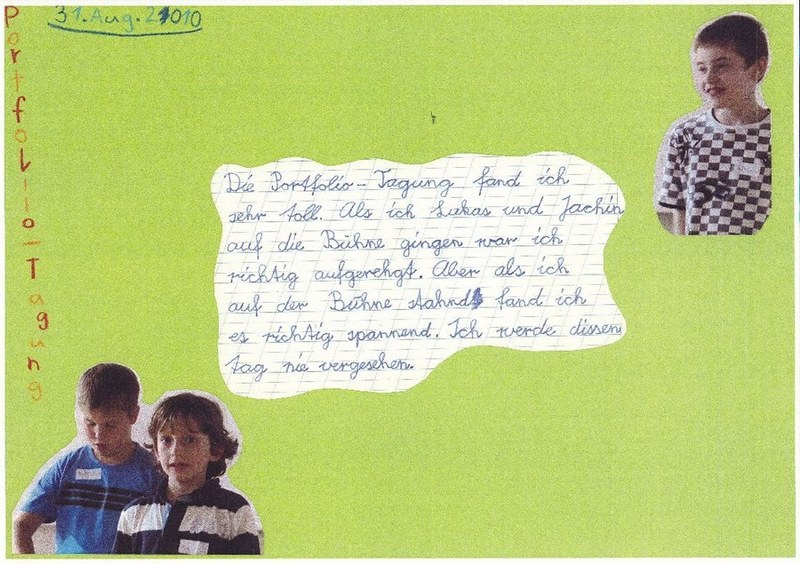 Portfolio-Tagung
31. Aug. 2010
Die Portfolio-Tagung fand ich
sehr toll. Als ich Lukas und Jachin
auf die Bühne gingen war ich
richtig aufgerehgt. Aber als ich
auf der Bühne stahnd fand ich
es richtig spannend. Ich werde dissen
tag nie vergesehen.